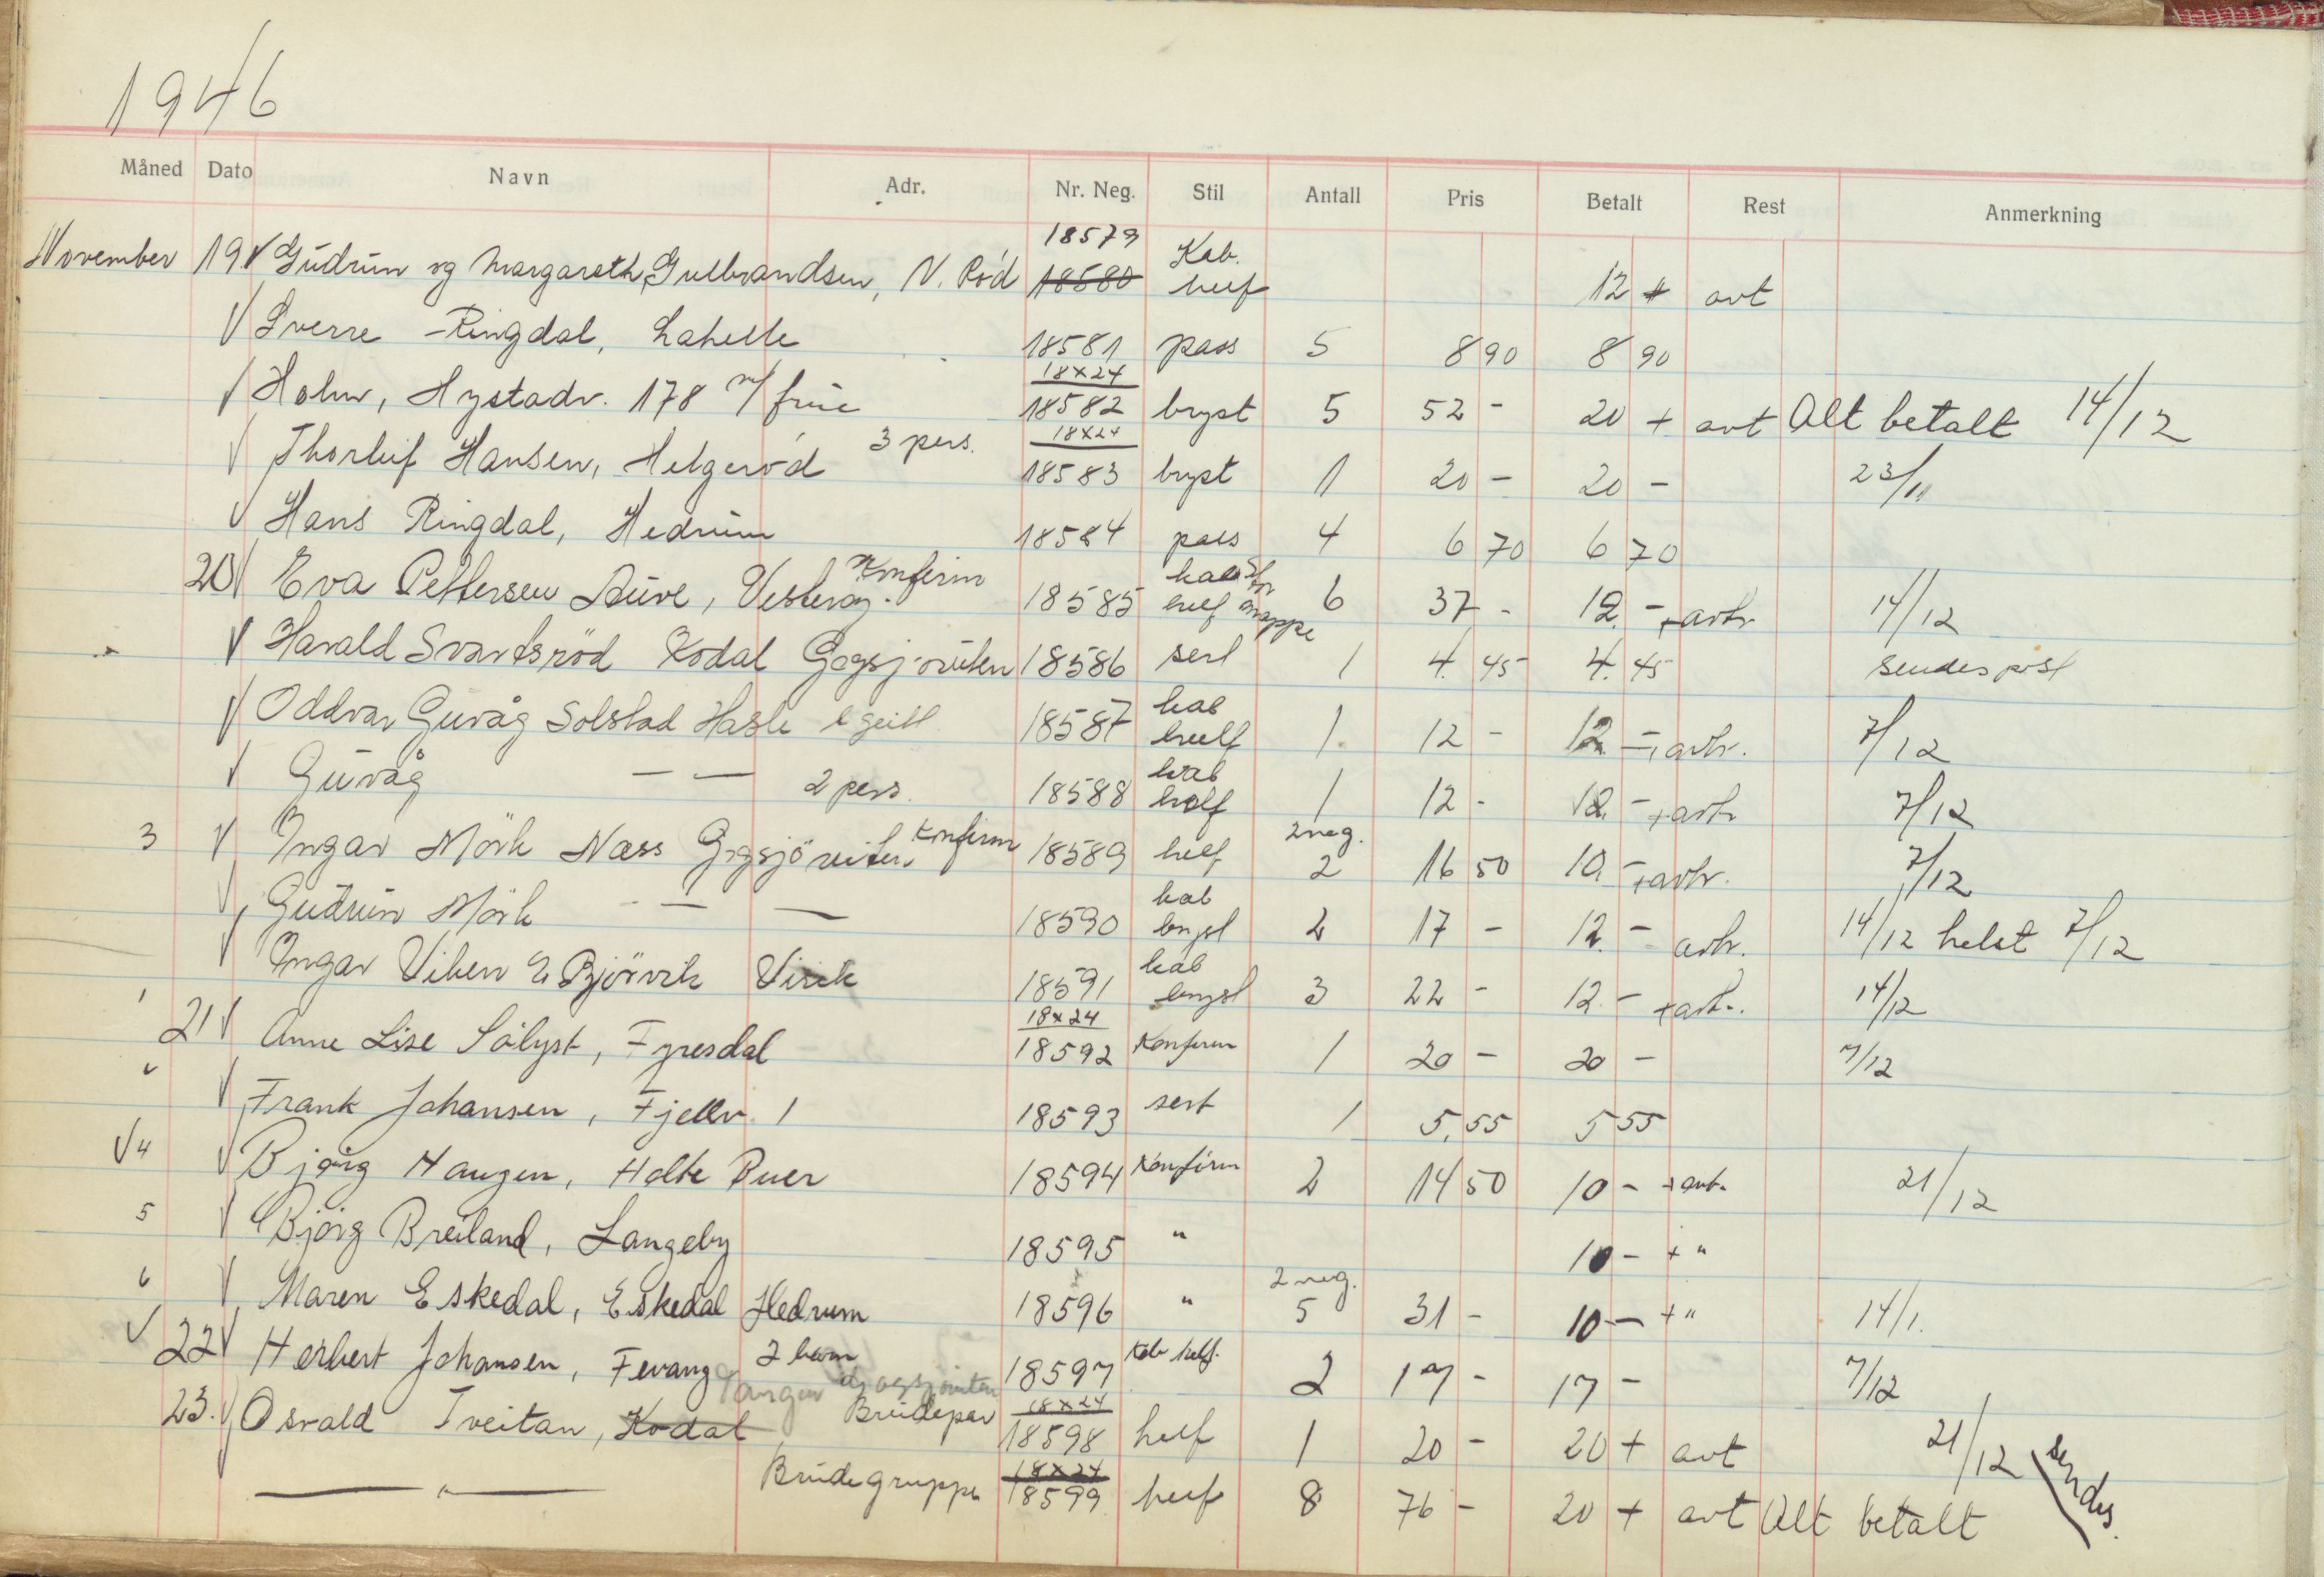 1946
Måned Dato Navn Adr. Nr. Neg. Stil Antall Pris Betalt Rest Anmerkning
18579 Kab.
November 19 √ Gudrun og Margareth Gulbrandsen, N. Röd 18580 huf 12 + avt
√ Sverre Ringdal, Lahelle 18581 pass 5 8 90 8 90
18x24
√ Holm, Hystadv. 178 m/ frue 18582 bryst 5 52 - 20 + avt Alt betalt 14/12
18x24
√ Thorleif Hansen, Helgeröd 3 pers. 18583 bryst 1 20 - 20 - 23/11
√ Hans Ringdal, Hedrum 18584 pass 4 6 70 6 70
Konfirm kab
20 √ Eva Pettersen Buve, Vesteröy. 18585 huf mappe 6 37 - 12. - + avbr 14/12
√ Harald Svartsröd Kodal Gogsjöruten 18586 sert 1 4. 45 4. 45 sendes post
kab
√ Oddvar Guvåg Solstad Hasle 18587 huf 1 12 - 12 - + avbr. 7/12
kab
√ Guvåg — — 2 pers. 18588 half 1 12 - 12. - + avbr 7/12
2 neg.
3 √ Ingar Mörk Næss Gogsjöruten Konfirm 18589 helf 2 16 50 10. - + avbr. 7/12
kab
√ Gudrun Mörk - — — 18590 bryst 2 17 - 12. - avbr. 14/12 helst 7/12
kab
√ Ingar Viken E Björvik Virik 18591 bryst 3 22 - 12. - + avbr. 14/12
18x24
21 √ Anne Lise Sölyst, Fyresdal 18592 Konfirm 1 20 - 20 - 7/12
√ Frank Johansen, Fjellv. 1 18593 sert 1 5. 55 5 55
√ 4 √ Bjørg Haugen, Holte Buer 18594 Konfirm 2 14 50 10 - + avt. 21/12
5 √ Bjørg Breiland, Langeby 18595 " 10 - + "
2 neg.
6 √ Maren Eskedal, Eskedal Hedrum 18596 " 5 31 - 10 - + " 14/1.
√ 22 √ Herbert Johansen, Fevang 2 barn 18597 Kab helf. 2 17 - 17 - 7/12
Gogsjöruten 18x24
23. √ Osvald Tveitan, Kodal Brudepar 18598 helf 1 20 - 20 + avt 21/12 sendes.
18x24
— " — Brudegruppe 18599 huf 8 76 - 20 + avt Alt betalt